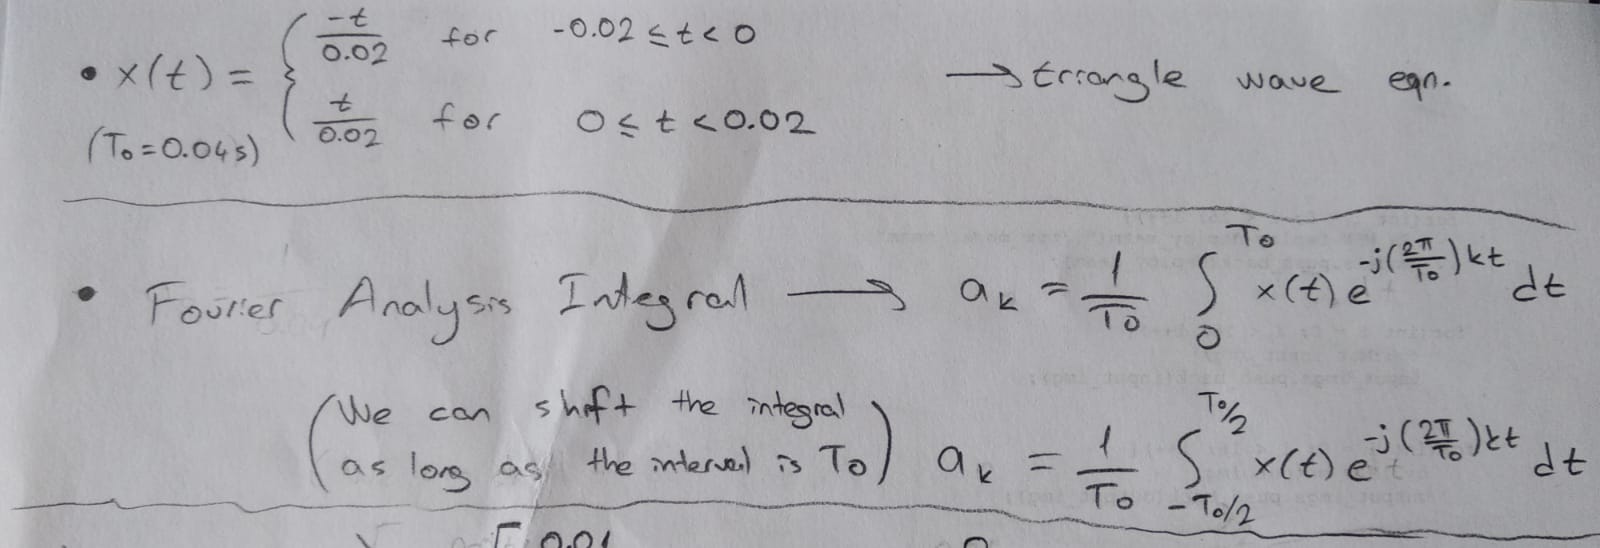 • x(t) = { -t/0.02 for -0.02 ≤ t < 0
t/0.02 for 0 ≤ t < 0.02
→ triangle wave eqn.
(T₀=0.04s)
• Fourier Analysis Integral → aₖ = 1/T₀ ∫₀^T₀ x(t) e^-j(2π/T₀)kt dt
(We can shift the integral
as long as the interval is T₀) aₖ = 1/T₀ ∫_-T₀/2^T₀/2 x(t) e^-j(2π/T₀)kt dt